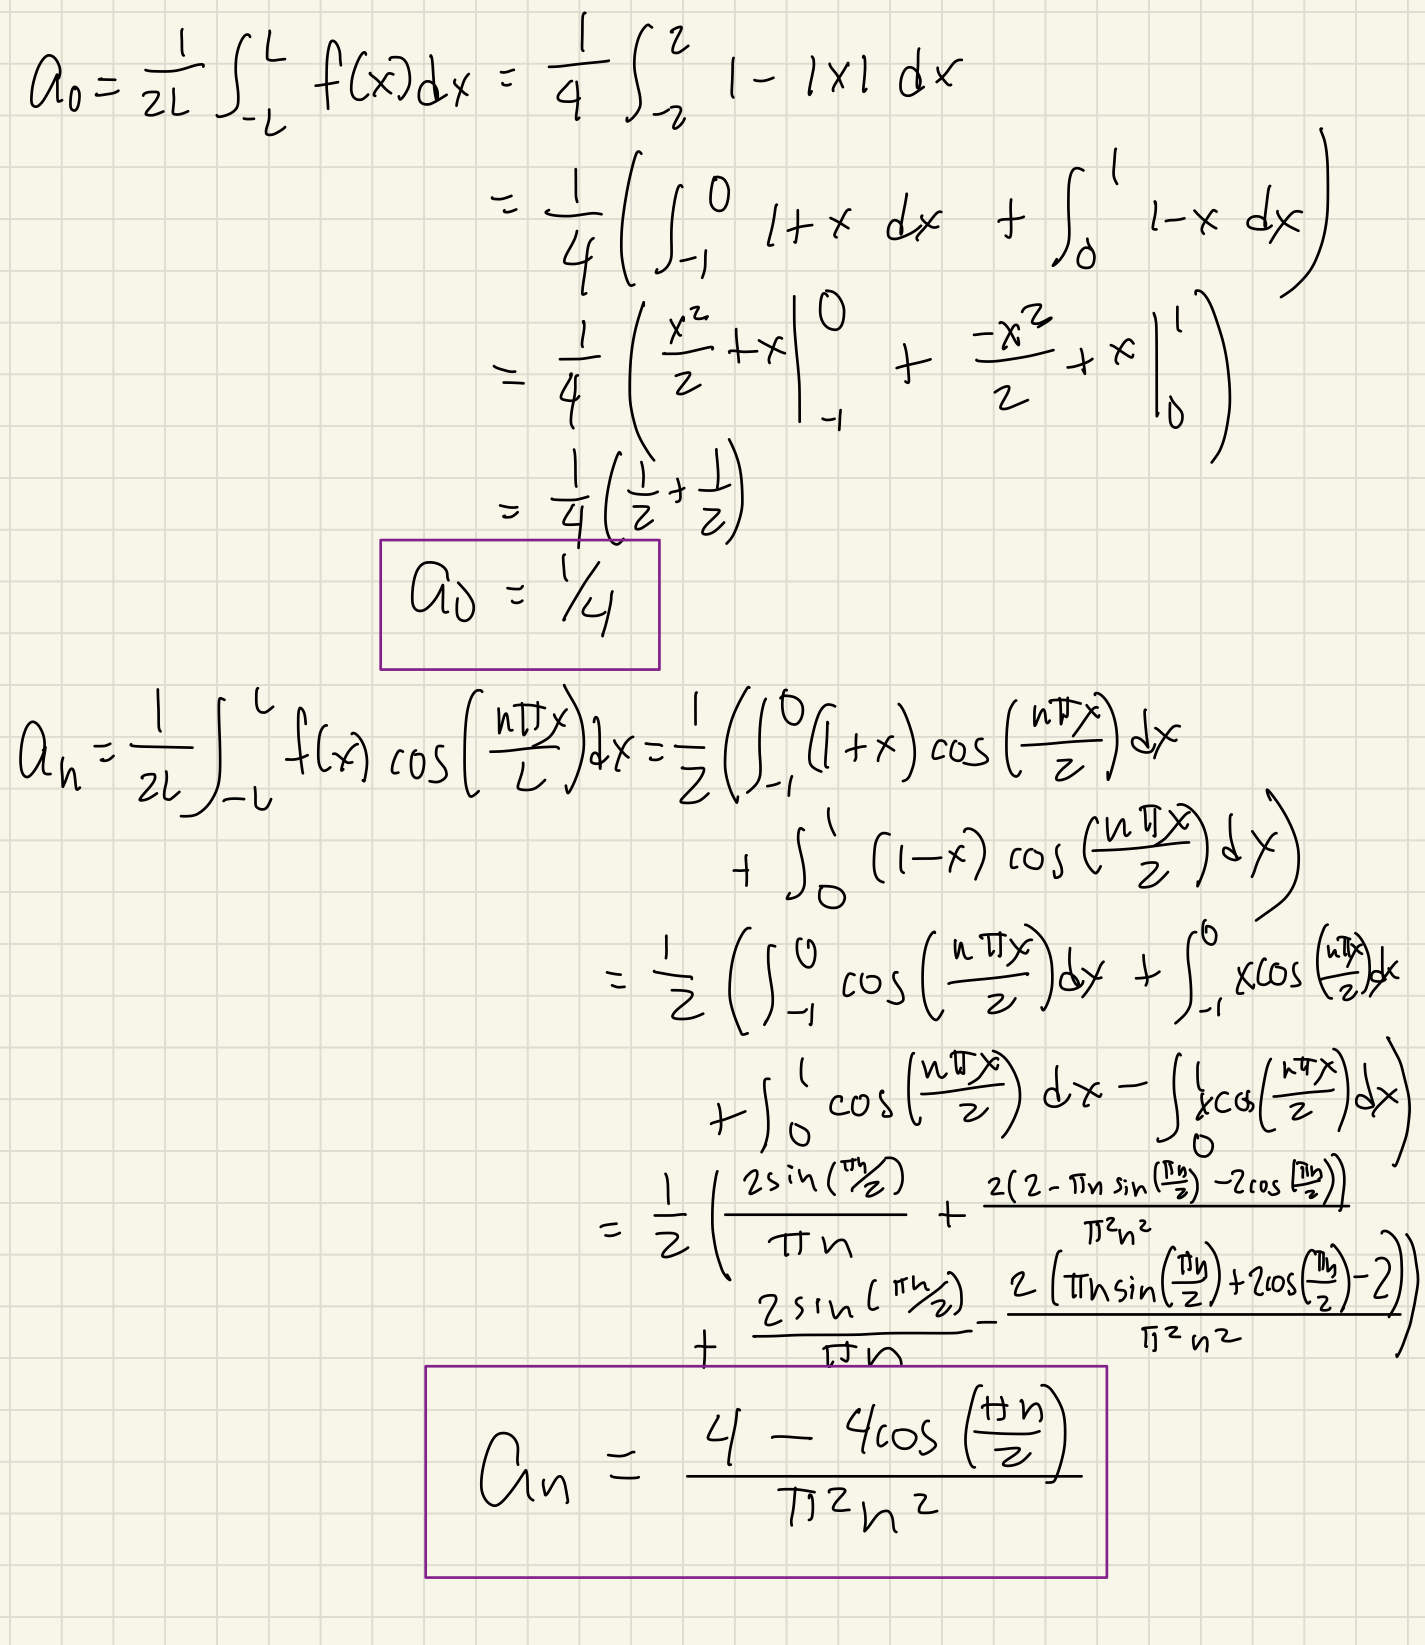 a₀ = 1/(2L) ∫_{-L}^{L} f(x) dx = 1/4 ∫_{-2}^{2} 1 - |x| dx
= 1/4 ( ∫_{-1}^{0} 1 + x dx + ∫_{0}^{1} 1 - x dx )
= 1/4 ( x²/2 + x |_{-1}^{0} + -x²/2 + x |_{0}^{1} )
= 1/4 ( 1/2 + 1/2 )
a₀ = 1/4
aₙ = 1/(2L) ∫_{-L}^{L} f(x) cos(nπx/L) dx = 1/2 ( ∫_{-1}^{0} (1 + x) cos(nπx/2) dx
+ ∫_{0}^{1} (1 - x) cos(nπx/2) dx )
= 1/2 ( ∫_{-1}^{0} cos(nπx/2) dx + ∫_{-1}^{0} x cos(nπx/2) dx
+ ∫_{0}^{1} cos(nπx/2) dx - ∫_{0}^{1} x cos(nπx/2) dx )
= 1/2 ( 2 sin(πn/2)/(πn) + 2(2 - πn sin(πn/2) - 2cos(πn/2))/(π²n²)
+ 2 sin(πn/2)/(πn) - 2(πn sin(πn/2) + 2cos(πn/2) - 2)/(π²n²) )
aₙ = (4 - 4cos(πn/2))/(π²n²)